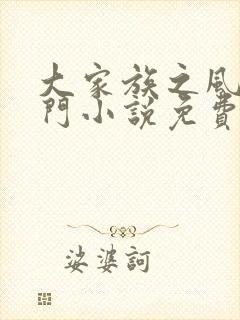 大家族之風
門小說免費
娑婆訶